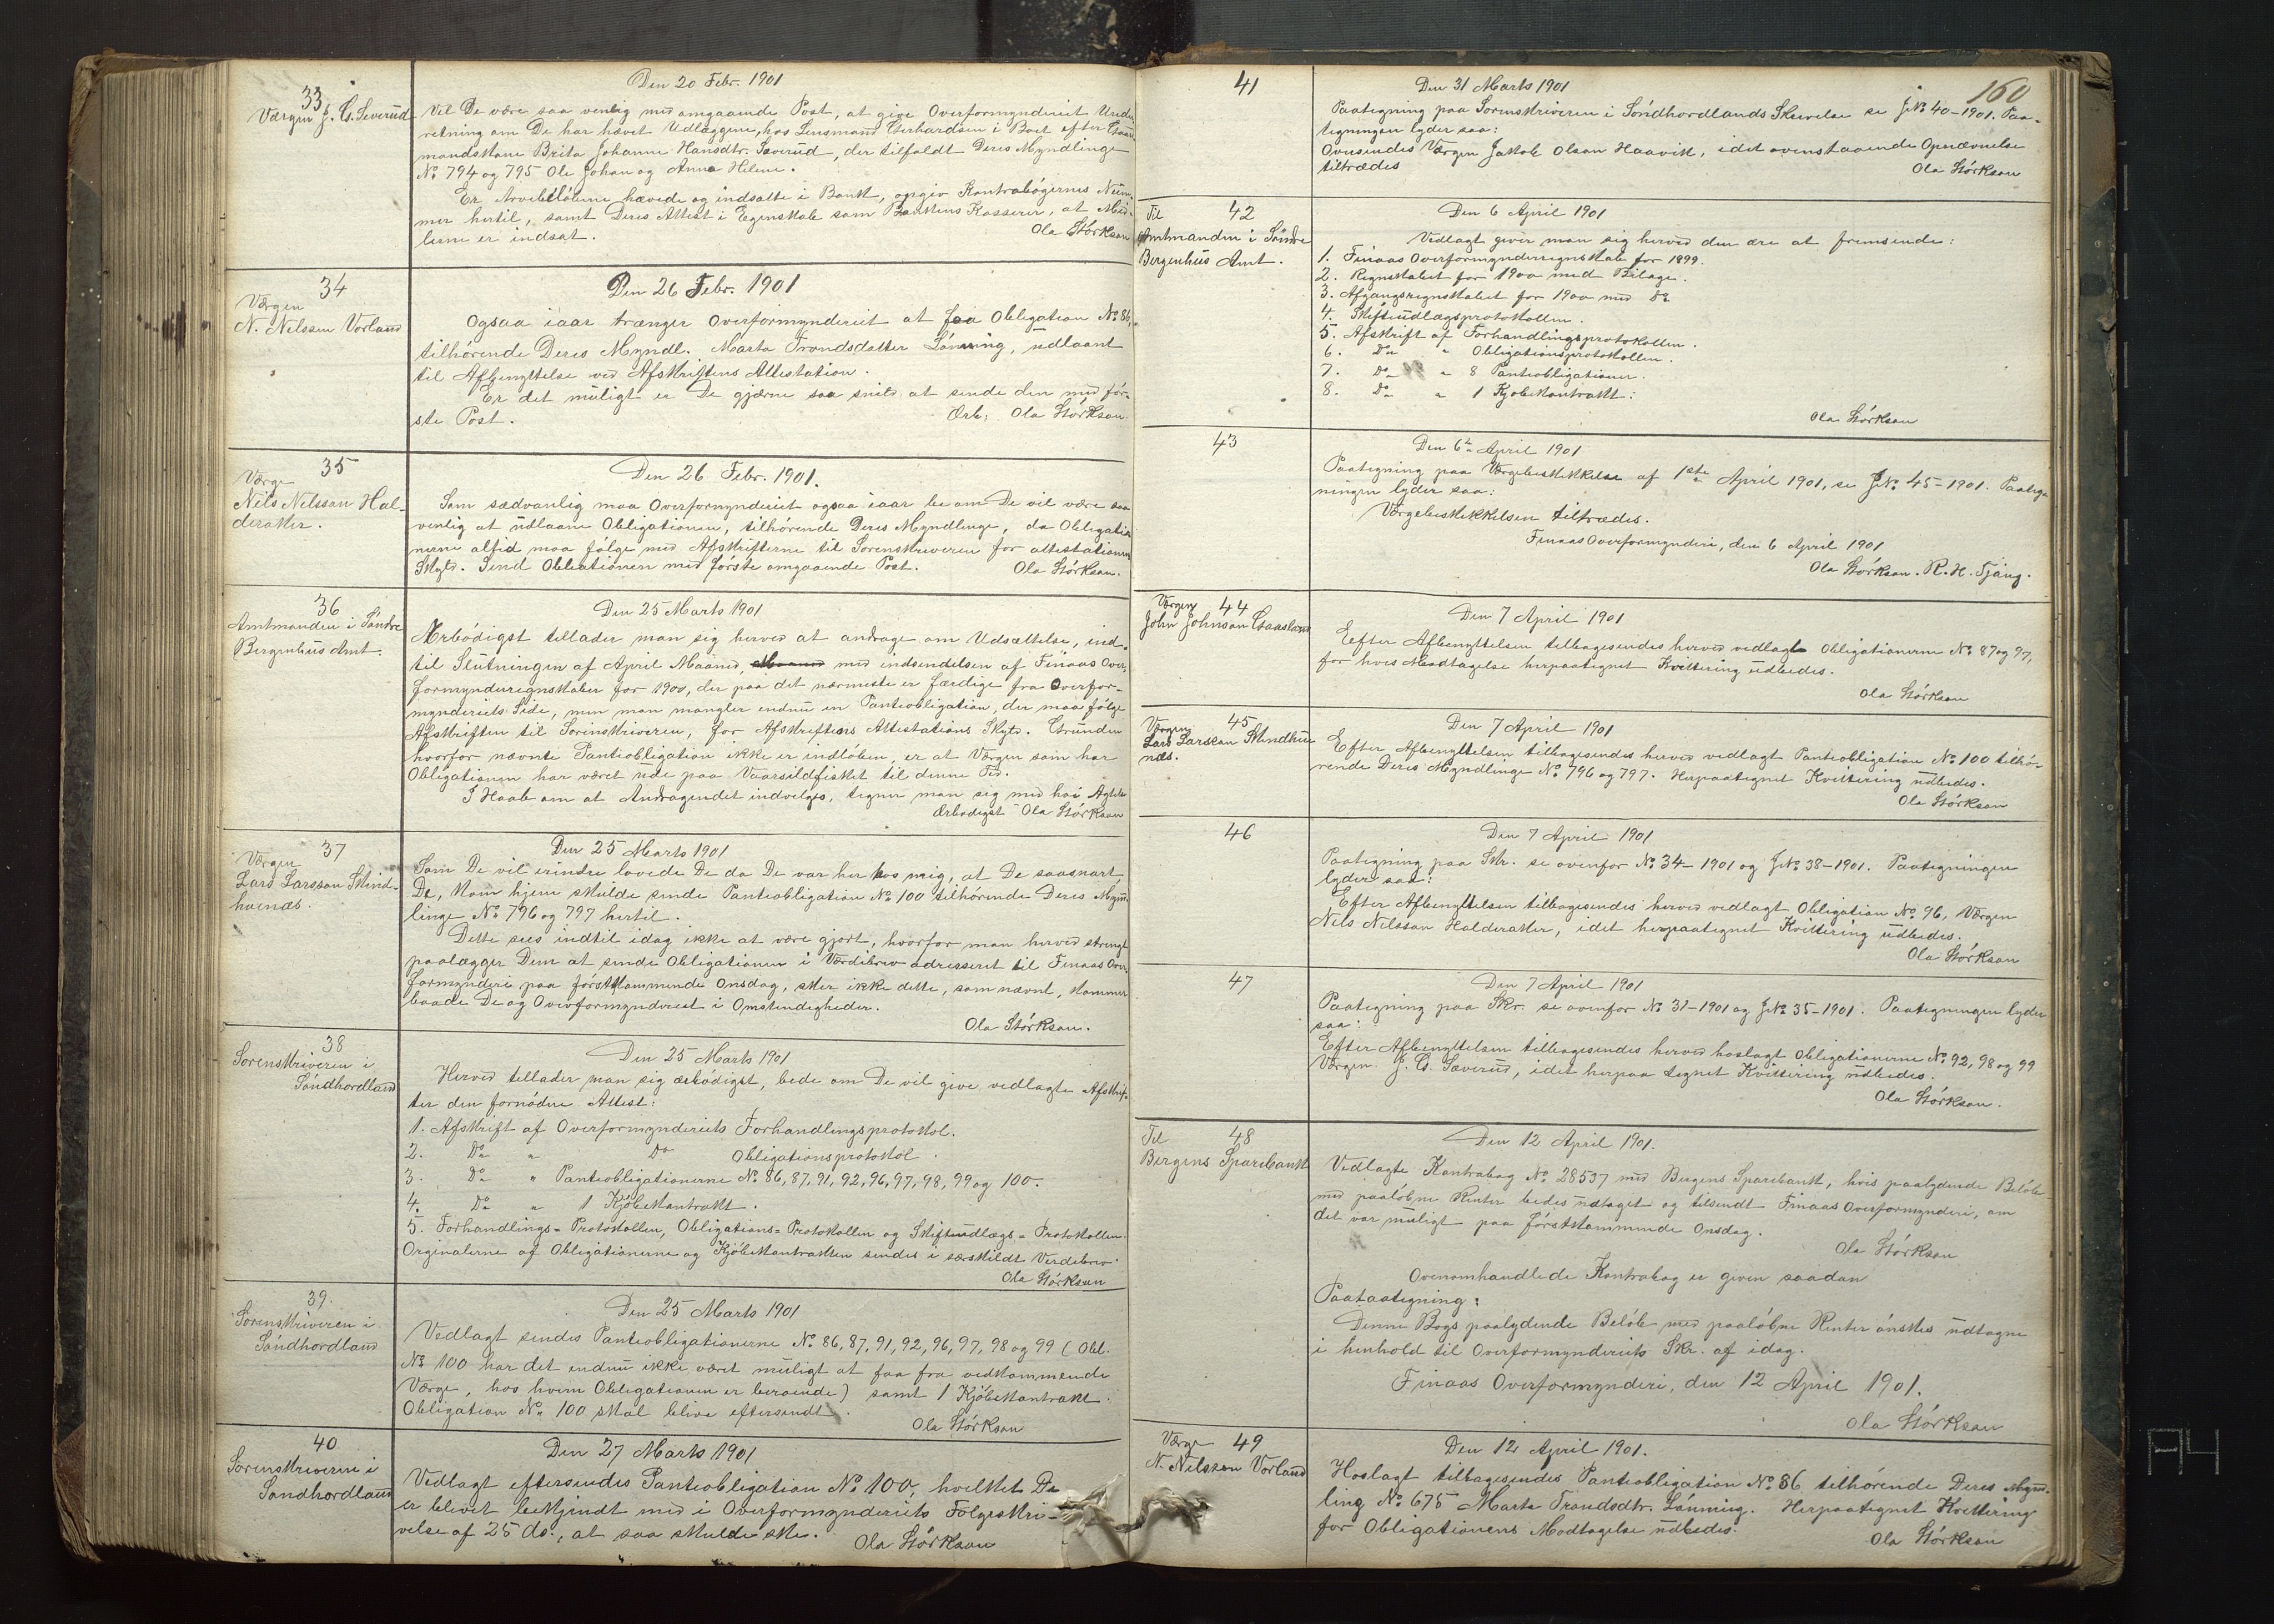 33
Værgen J. G. Severud
Den 20 Febr. 1901
Vil De være saa venlig med omgaaende Post, at give Overformynderiet Under-
retning om De har hævet Udlæggene, hos Lensmand Gerhardsen i Boet efter Gaard-
mandskone Brita Johanne Hansdtr. Sæverud, der tilfaldt Deres Myndlinge
No 794 og 795 Ole Johan og Anna Helene.
Er Arvebeløbene hævede og indsatte i Bank, opgiv Kontrabøgernes Num-
mer hertil, samt Deres Attest i Egenskab som Bankens Kasserer, at Mid-
lerne er indsat.
Ola Størkson
34
Værgen
N. Nelssen Vorland
Den 26 Febr. 1901
Ogsaa iaar trænger Overformynderiet at faa Obligation No 86,
tilhørende Deres Myndl. Marta Trondsdatter Lønning, udlaant
til Afbenyttelse ved Afskriftens Attestation.
Er det muligt er De gjærne saa snild at sende den med før-
ste Post.
Ærb: Ola Størkson
35
Værge
Nils Nelssen Hal-
deraker.
Den 26 Febr. 1901.
Som sædvanlig maa Overformynderiet ogsaa iaar be om De vil være saa
venlig at udlaane Obligationen, tilhørende Deres Myndlinge, da Obligatio-
nerne altid maa følge med Afskrifterne til Sorenskriveren for attestationens
Skyld. Send Obliationen med første omgaaende Post.
Ola Størkson.
36
Amtmanden i Søndre
Bergenhus Amt.
Den 25 Marts 1901
Ærbødigst tillader man sig herved at andrage om Udsættelse, ind-
til Slutningen af April Maaned, Maaned med indsendelsen af Finaas Over-
formynderregnskaber for 1900, der paa det nærmeste er færdige fra Overfor-
mynderiets Side, men man mangler endnu en Panteobligation, der maa følge
Afskriften til Sorenskriveren, for Afskriftens Attestations Skyld. Grunden
hvorfor nævnte Panteobligation ikke er indløben, er at Værgen som har
Obligationen har været ude paa Vaarsildfisket til denne Tid.
I Haab om at Andragendet indvilges, tegner man sig med høi Agtelse
Ærbødigst Ola Størkson
37
Værgen
Lars Larsson Skind-
huenæs.
Den 25 Marts 1901
Som De vil erindre lovede De da De var her hos mig, at De saasnart
De, kom hjem skulde sende Panteobligation No 100 tilhørende Deres Mynd-
linge No 796 og 797 hertil.
Dette sees indtil idag ikke at være gjort, hvorfor man herved strengt
paalægger Dem at sende Obligationen i Værdibrev adresseret til Finaas Over-
formynderi paa førstkommende Onsdag, sker ikke dette, som nævnt, kommer
baade De og Overformynderiet i Omstendigheder.
Ola Størkson.
38
Sorenskriveren i
Søndhordland
Den 25 Marts 1901
Herved tillader man sig ærbødigst, bede om De vil give vedlagte Afskrif-
ter den fornødne Attest:
1. Afskrift af Overformynderiets Forhandlingsprotokol.
2. Do " Do Obligationsprotokol.
3. Do " Panteobligationerne No 86, 87, 91, 92, 96, 97, 98, 99 og 100.
4. Do " 1 Kjøbekontrakt.
5. Forhandlings-Protokollen, Obligations-Protokollen og Skifteudlægs-Protokollen.
Orginalerne af Obligationerne og Kjøbekontrakten sendes i særskildt Verdibrev.
Ola Størkson
39.
Sorenskriveren i
Søndhordland
Den 25 Marts 1901
Vedlagt sendes Panteobligationerne No 86, 87, 91, 92, 96, 97, 98 og 99 (Obl.
No 100 har det endnu ikke været muligt at faa fra vedkommende
Værge, hos hvem Obligationen er beroende) samt 1 Kjøbekontrakt.
Obligation No 100 skal blive eftersendt.
Ola Størkson
40
Sorenskriveren i
Søndhordland
Den 27 Marts 1901
Vedlagt eftersendes Panteobligation No 100, hvilket De
er blevet bekjendt med i Overformynderiets Følgeskri-
velse af 25 ds., at saa skulde ske.
Ola Størkson
160
41
Den 31 Marts 1901
Paategning paa Sorenskriveren i Søndhordlands Skrivelse se JNo 40-1901. Paa-
tegningen lyder saa:
Ovensendes Værgen Jakob Olson Haavik, idet ovenstaaende Opnævnelse
tiltrædes
Ola Størkson
42
Til
Amtmanden i Søndre
Bergenhus Amt.
Den 6 April 1901
Vedlagt giver man sig herved den ære at fremsende:
1. Finaas Overformynderregnskab for 1899.
2. Regnskabet for 1900 med Bilage.
3. Afgangsregnskabet for 1900 med Do
4. Skifteudlægsprotokollen.
5. Afskrift af Forhandlingsprotokollen.
6. Do " Obligationsprotokollen.
7. Do " 8 Panteobligationer.
8. Do " 1 Kjøbekontrakt:
Ola Størkson
43
Den 6te April 1901
Paategning paa Værgebeskikkelse af 1ste April 1901, se JNo 45-1901. Paateg-
ningen lyder saa:
Værgebeskikkelsen tiltrædes.
Finaas Overformynderi, den 6 April 1901
Ola Størkson. R. H. Tjang.
44
Værgen
John Johnson Gaasland
Den 7 April 1901
Efter Afbenyttelsen tilbagesendes herved vedlagt Obligationerne No 87 og 97,
for hvis Modtagelse herpaategnet Kvittering udbedes.
Ola Størkson
45
Værgen
Lars Larsson Skindhue
næs.
Den 7 April 1901
Efter Afbenyttelsen tilbagesendes herved vedlagt Panteobligation No 100 tilhø-
rende Deres Myndlinge No 796 og 797. Herpaategnet Kvittering udbedes.
Ola Størkson
46
Den 7 April 1901
Paategning paa Skr. se ovenfor No 34-1901 og JNo 38-1901. Paategningen
lyder saa:
Efter Afbenyttelsen tilbagesendes herved vedlagt Obligation No 96, Værgen
Nels Nelsson Halderaker, idet herpaategnet Kvittering udbedes.
Ola Størkson
47
Den 7 April 1901
Paategning paa Skr. se ovenfor No 31-1901 og JNo 35-1901. Paategningen lyder
saa:
Efter Afbenyttelsen tilbagesendes herved hoslagt Obligationerne No 92, 98 og 99
Værgen J. G. Sæverud, idet herpaa tegnet Kvittering udbedes.
Ola Størkson.
48
Til
Bergens Sparebank
Den 12 April 1901.
Vedlagte Kontrabog No 28537 med Bergens Sparebank, hvis paalydende Beløb
med paaløbne Renter bedes udtaget og tilsendt Finaas Overformynderi, om
det var muligt paa førstkommende Onsdag.
Ola Størkson
Ovenomhandlede Kontrabog er given saadan
Paataategning:
Denne Bogs paalydende Beløb med paaløbne Renter ønskes udtagne
i henhold til Overformynderiets Skr. af idag.
Finaas Overformynderi, den 12 April 1901.
Ola Størkson
49
Værge
N. Nelsson Vorland
Den 12 April 1901.
Hoslagt tilbagesendes Panteobligation No 86 tilhørende Deres Mynd-
ling No 675 Marta Trondsdtr. Lønning. Herpaategnet Kvittering
for Obligationens Modtagelse udbedes.
Ola Størkson